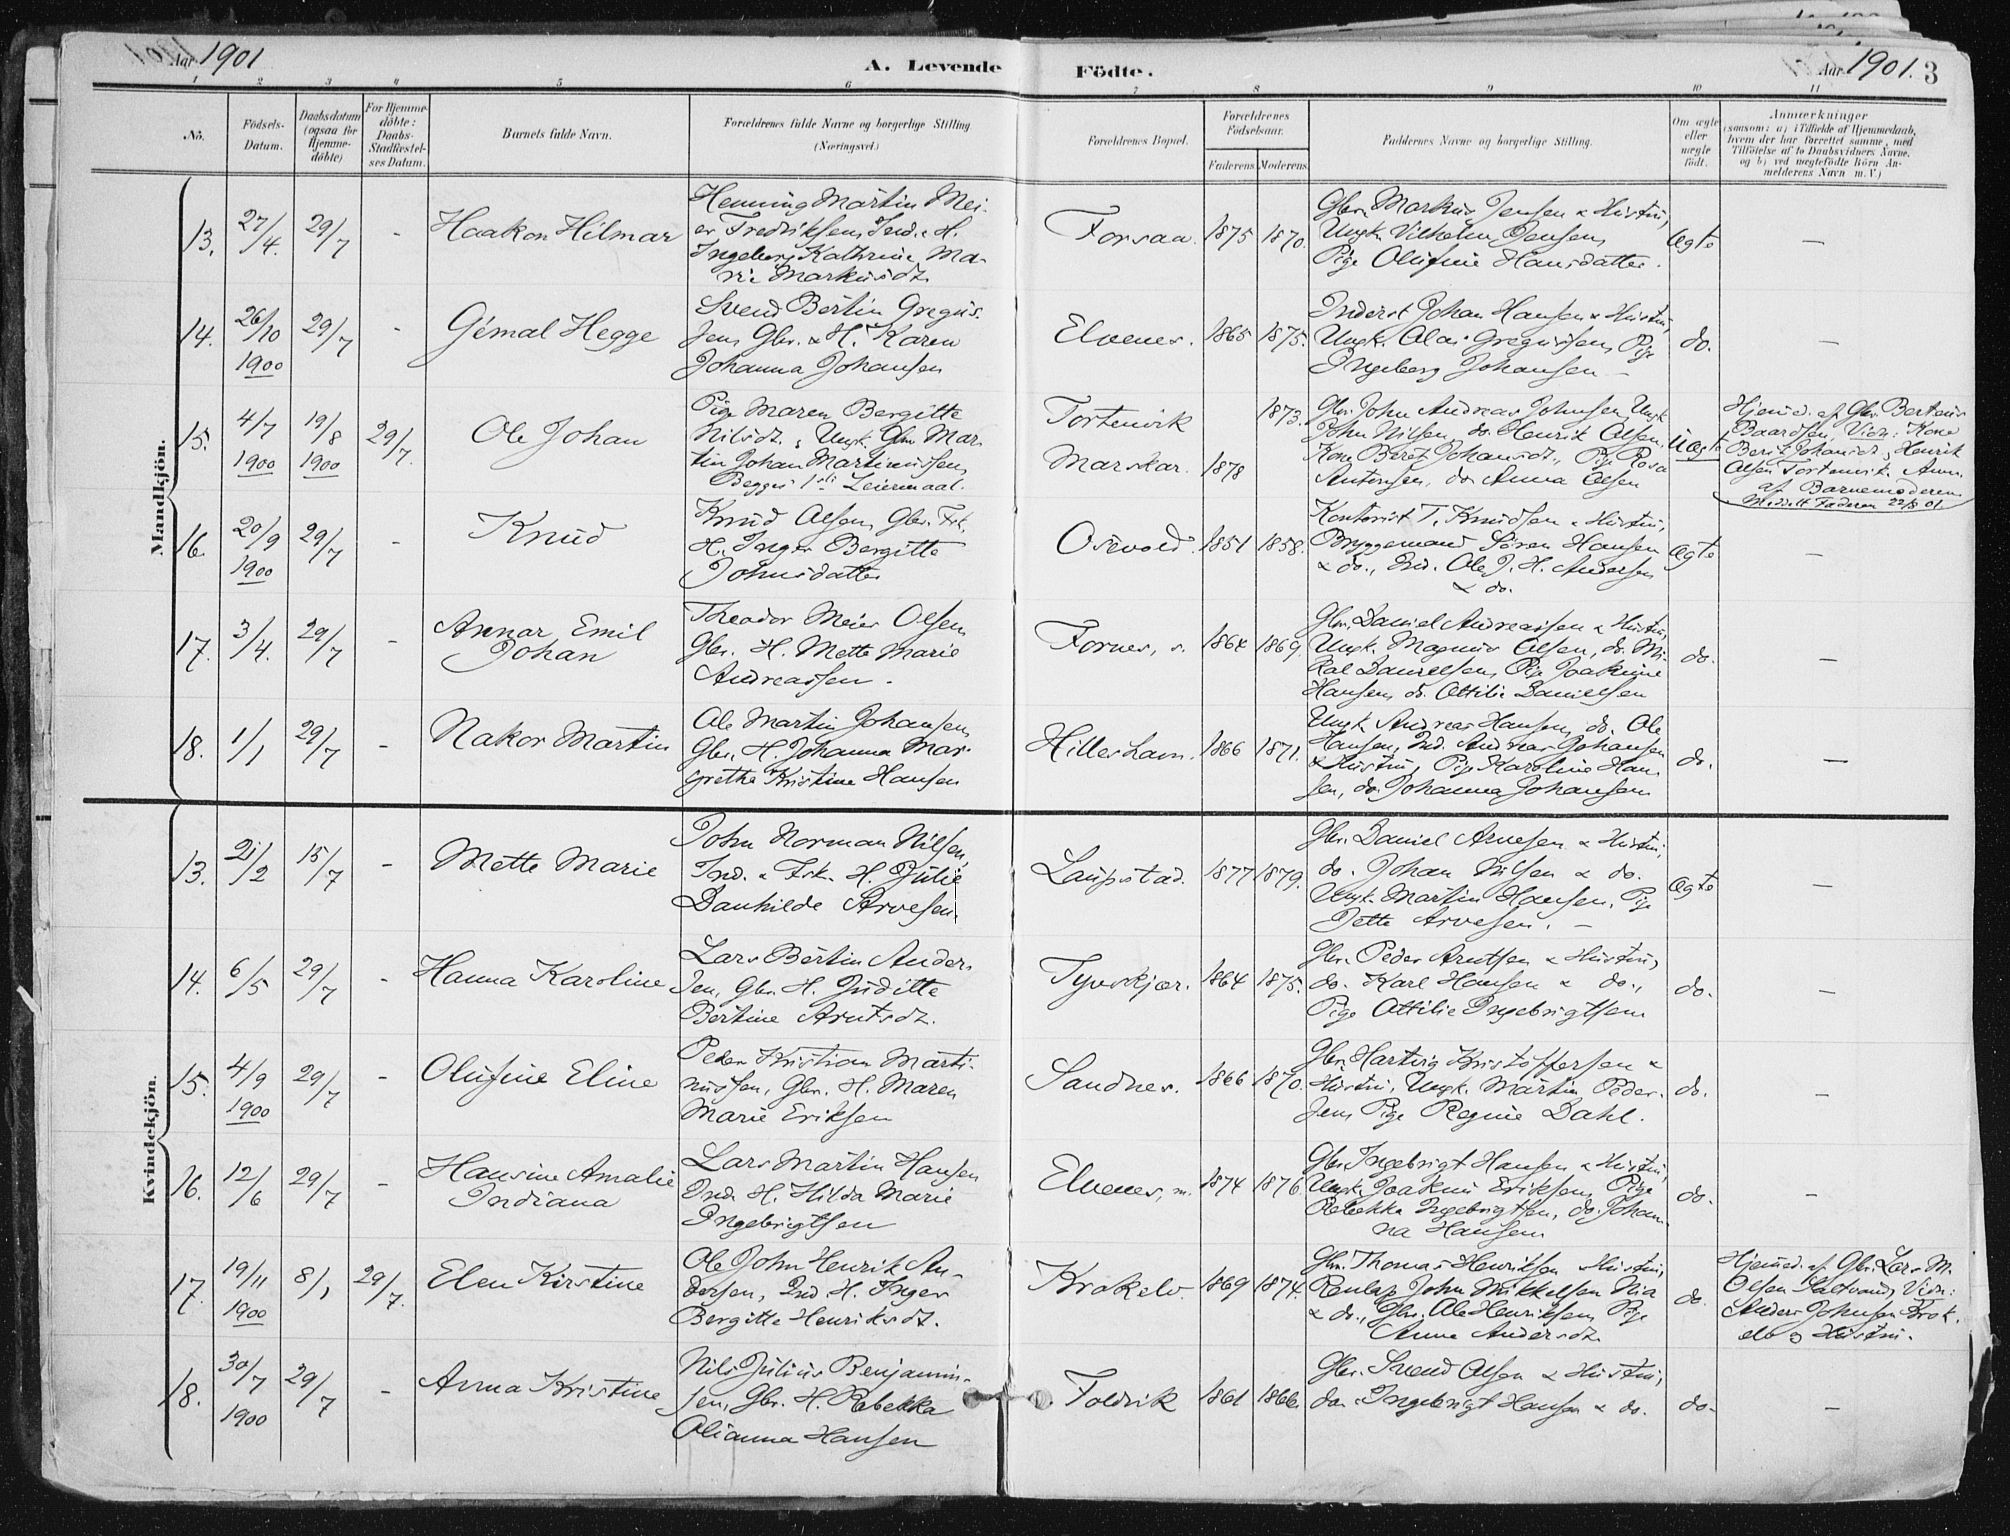 Aar 1901
A. Levende Födte.
Aar 1901. 3
1 2 3 4 5 6 7 8 9 10 11
No.
Födsels-Datum.
Daabsdatum (ogsaa for Hjemme-döbte)
For Hjemme-döbte: Daabs-Stadfæstel-ses Datum.
Barnets fulde Navn.
Forældrenes fulde Navne og borgerlige Stilling
(Næringsvei.)
Forældrenes Bopæl.
Forældrenes Födselsaar.
Faderens Moderens
Faddernes Navne og borgerlige Stilling.
Om ægte eller uægte födt.
Anmærkninger
(saasom: a) i Tilfælde af Hjemmedaab,
hvem der har forrettet samme, med
Tilföielse af to Daabsvidners Navne,
og b) ved uægtefödte Börn An-
melderens Navn m. V.)
Mandkjön.
13. 27/4. 29/7 - Haakon Hilmar
Henning Martin Mei-
er Fredriksen, Ind. H.
Ingeborg Kathrine Ma-
rie Markusdt.
Forsaa. 1875 1870.
Gbr. Markus Jensen & Hustru,
Ungk. Vilhelm Jensen,
Pige Olufine Hansdatter.
Ægte —
14. 26/10 1900 29/7 - Gémal Hegge
Svend Bertin Gregus-
sen, Gbr. & H. Karen
Johanna Johansen
Elvenes. 1865 1875.
Inderst Johan Hansen & Hustru,
Ungk. Olai Gregussen, Pige
Ingeborg Johansen —
do. —
15. 4/7 1900 19/8 1900 29/7. Ole Johan
Pige Maren Bergitte
Nilsdt., Ungk. Gbr. Mar-
tin Johan Martinussen,
Begges 1ste Leiermaal.
Tortenvik 1873.
Marskar. 1878
Gbr. John Andreas Johnsen, Ungk.
John Nilsen, do. Henrik Olsen,
Kone Beret Johansdt., Pige Rosa
Antonsen, do. Anna Olsen
Uægte
Hjemmed. af Gbr. Berteus
Baardsen, Vidn: Kone
Berit Johansdt., Henrik
Olsen Tortenvik. Anm.
af Barnemoderen
Meddelt Faderen 22/8 01.
16. 20/9 1900 29/7 - Knud
Knud Olsen, Gbr. Fsk.
H. Inger Bergitte
Johnsdatter
Osevold. 1851 1858.
Kontorist T. Knudsen & Hustru,
Bryggemand Sören Hansen
& do., Ind. Ole J. H. Andersen
& do.
Ægte —
17. 3/4. 29/7 - Annar Emil
Johan
Theodor Meier Olsen,
Gbr. H. Mette Marie
Andreassen.
Fornes, s. 1864 1869.
Gbr. Daniel Andreassen & Hustru,
Ungk. Magnus Olsen, do. Mi-
kal Danielsen, Pige Joakime
Hansen, do. Ottilie Danielsen
do. —
18. 1/1 29/7 - Nakor Martin
Ole Martin Johansen,
Gbr. H. Johanna Mar-
grethe Kristine Hansen
Hillesham. 1866 1871.
Ungk. Andreas Hansen, do. Ole
Hansen, Ind. Andreas Johansen
& Hustru, Pige Karoline Han-
sen, do. Johanna Johansen
do. —
Kvindekjön.
13. 21/2 15/7 - Mette Marie
John Norman Nilsen,
Ind. & Fsk. H. Julie
Danhilde Arvesen.
Laupstad. 1877 1879.
Gbr. Daniel Arvesen & Hustru,
do. Johan Nilsen & do.
Ungk. Martin Hansen, Pige
Dette Arvesen. —
Ægte —
14. 6/5 29/7 - Hanna Karoline
Lars Bertin Ander-
sen, Gbr. H. Juditte
Bertine Arntsdt.
Tyvskjær. 1864 1875.
Gbr. Peder Arntsen & Hustru,
do. Karl Hansen & do.,
Pige Ottilie Ingebrigtsen
do. —
15. 4/9 1900 29/7 - Olufine Eline
Peder Kristian Marti-
nussen, Gbr. H. Maren
Marie Eriksen
Sandnes. 1866 1870.
Gbr. Hartvig Kristoffersen &
Hustru, Ungk. Martin Peder-
sen, Pige Regine Dahl.
do. —
16. 12/6 29/7 - Hansine Amalie
Indiana
Lars Martin Hansen
Ind. H. Hilda Marie
Ingebrigtsen
Elvenes, m. 1874 1876.
Gbr. Ingebrigt Hansen & Hustru,
Ungk. Joakim Eriksen, Pige
Rebekka Ingebrigtsen, do. Johan-
na Hansen
do. —
17. 19/11 1900 8/1 29/7. Elen Kirstine
Ole John Henrik An-
dersen, Ind. H. Inger
Bergitte Henriksdt.
Krokelv. 1869 1874.
Gbr. Thomas Henriksen & Hustru,
John Mikkelsen Nia
& do., Gbr. Ole Henriksen, Pige
Anne Andersdt.
do.
Hjemmed. af Gbr. Lars M.
Olsen Saltvand, Vidn:
Anders Johnsen Krok-
elv & Hustru.
18. 30/7 1900 29/7 - Anna Kristine
Nils Julius Benjamin-
sen, Gbr. H. Rebekka
Olianna Hansen
Foldvik 1861 1866.
Gbr. Svend Olsen & Hustru,
do. Ingebrigt Hansen & do.
do- —